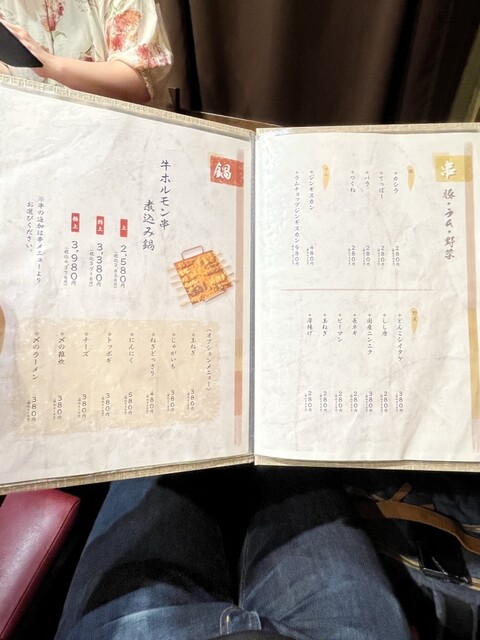 串
豚・ラム・野菜
・カシラ 280円
・てっぽー 280円
・バラ 280円
・つくね 280円
・ジンギスカン 480円
・ラムチョップジンギスカン 980円
・どんこシイタケ 380円
・しし唐 280円
・国産ニンニク 380円
・長ネギ 280円
・ピーマン 280円
・玉ねぎ 280円
・厚揚げ 280円
鍋
牛ホルモン串
煮込み鍋
上 2,580円
特上 3,380円
極上 3,980円
※串の追加は串メニューより
お選びください。
《オプションメニュー》
・玉ねぎ 380円
・じゃがいも 380円
・ねぎどっさり 480円
・にんにく 580円
・トッポギ 380円
・チーズ 380円
・〆の雑炊 380円
・〆のラーメン 380円